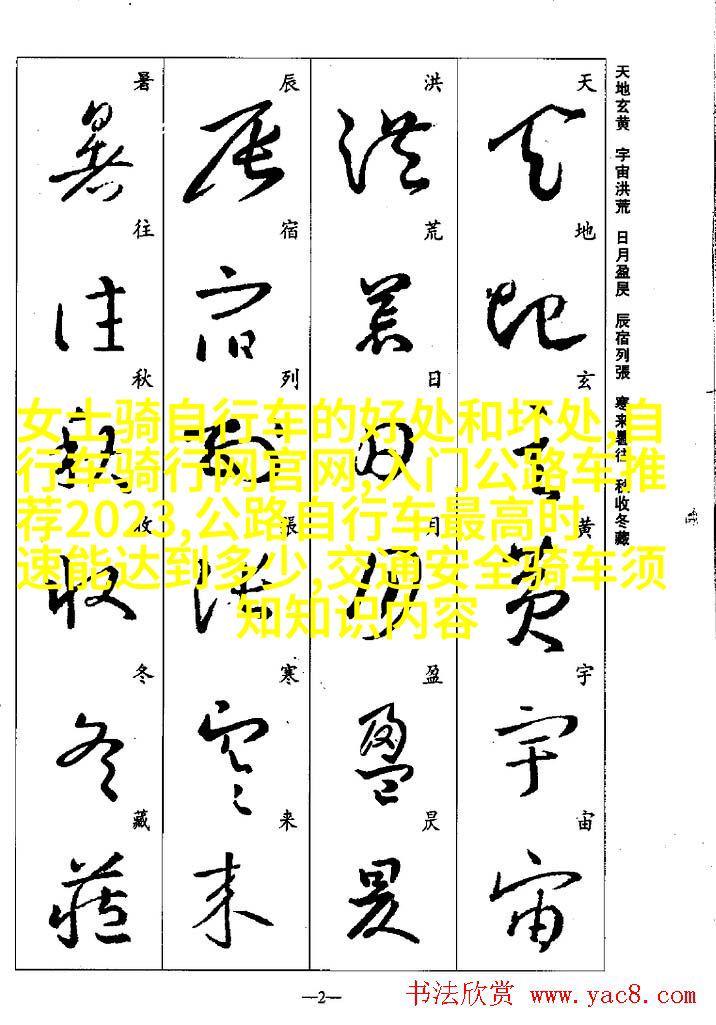 天地玄黄 宇宙洪荒 日月盈昃 辰宿列張 寒来暑往 秋收冬藏
天 天 地 地 玄 玄 黄 黄 宇 宇 宙 宙
洪 洪 荒 荒 日 日 月 月 盈 盈 昃 昃
辰 辰 宿 宿 列 列 張 張 寒 寒 来 来
暑 暑 往 往 秋 秋 收 收 冬 冬 藏 藏
女士骑自行车的好处和坏处,自
行车骑行网官网,入门公路车推
荐2023,公路自行车最高时
速能达到多少,交通安全骑车须
知知识内容
—2—
书法欣赏 www.yac8.com